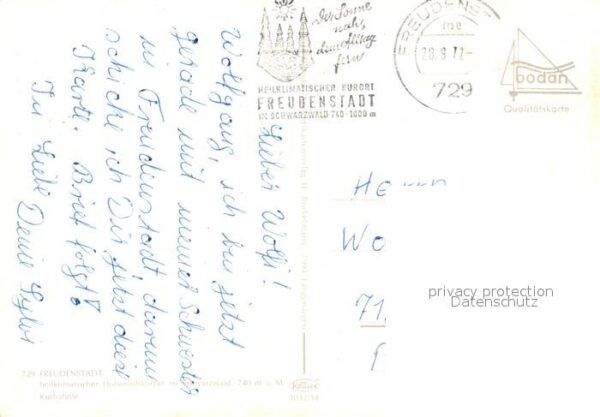 Der Sonne
nah,
dem Alltag
fern
HEILKLIMATISCHER KURORT
FREUDENSTADT
IM SCHWARZWALD 740-1000 m
FREUDENST
28.8.72
729
bodan
Qualitätskarte
Lieber Wolfi!
Wolfgang, ich bin jetzt
gerade mit meiner Schwester
in Freudenstadt, darum
schicke ich Dir jetzt diese
Karte. Brief folgt!
In Liebe Deine Sylvi
Herrn
Wo
71
privacy protection
Datenschutz
729 FREUDENSTADT
heilklimatischer Höhenluftkurort im Schwarzwald - 740 m ü. M.